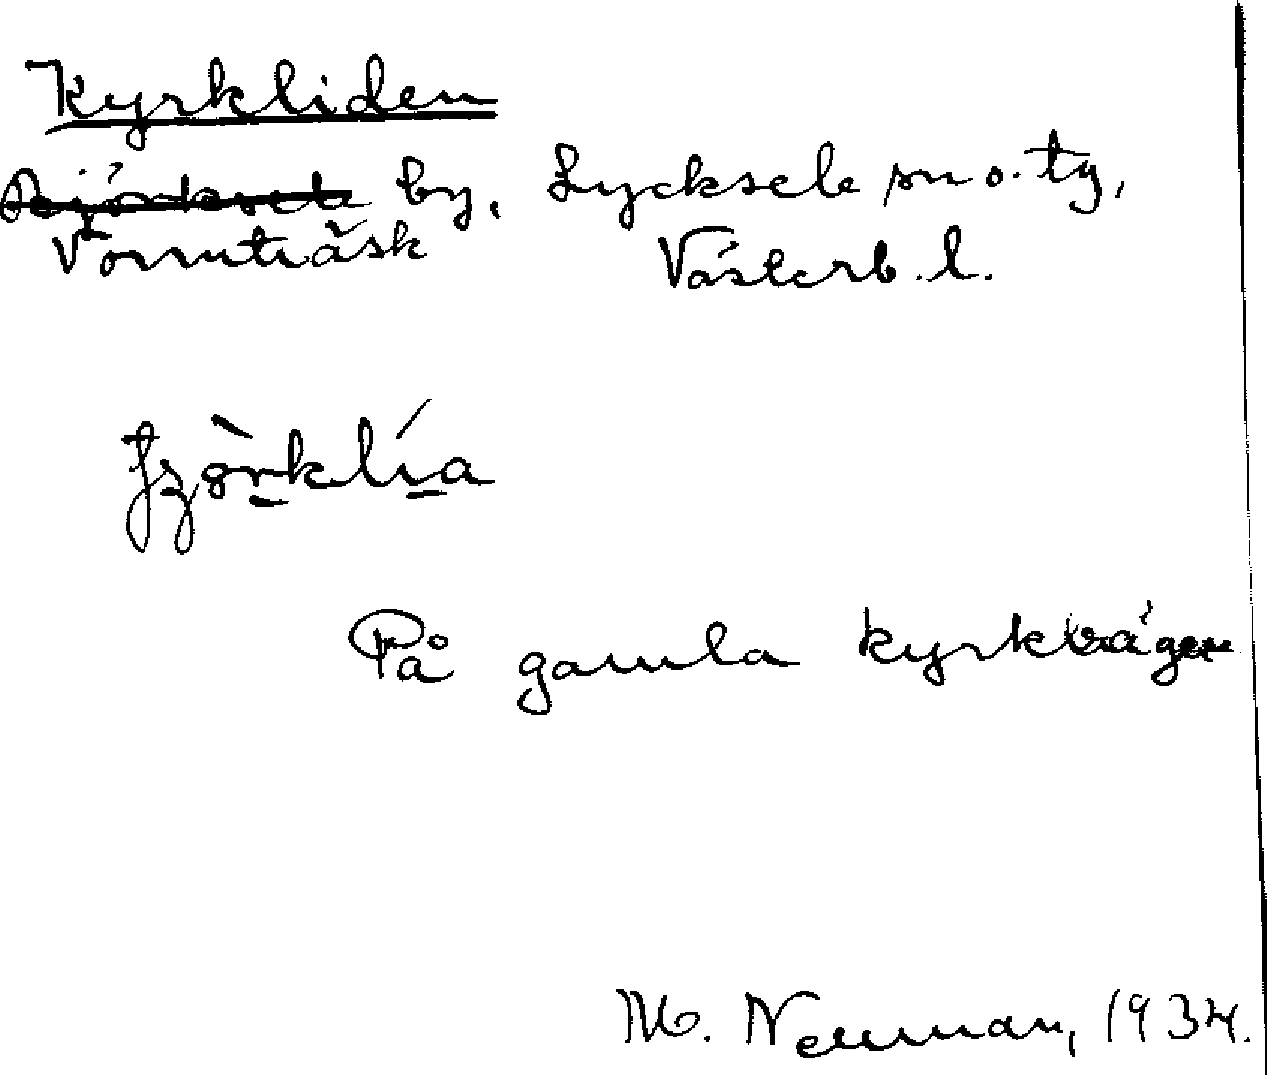 Kyrkliden
Björksele by, Lycksele sn o. tg,
Vormträsk Västerb. l.
På gamla kyrkvägen
M. Neuman, 1934.